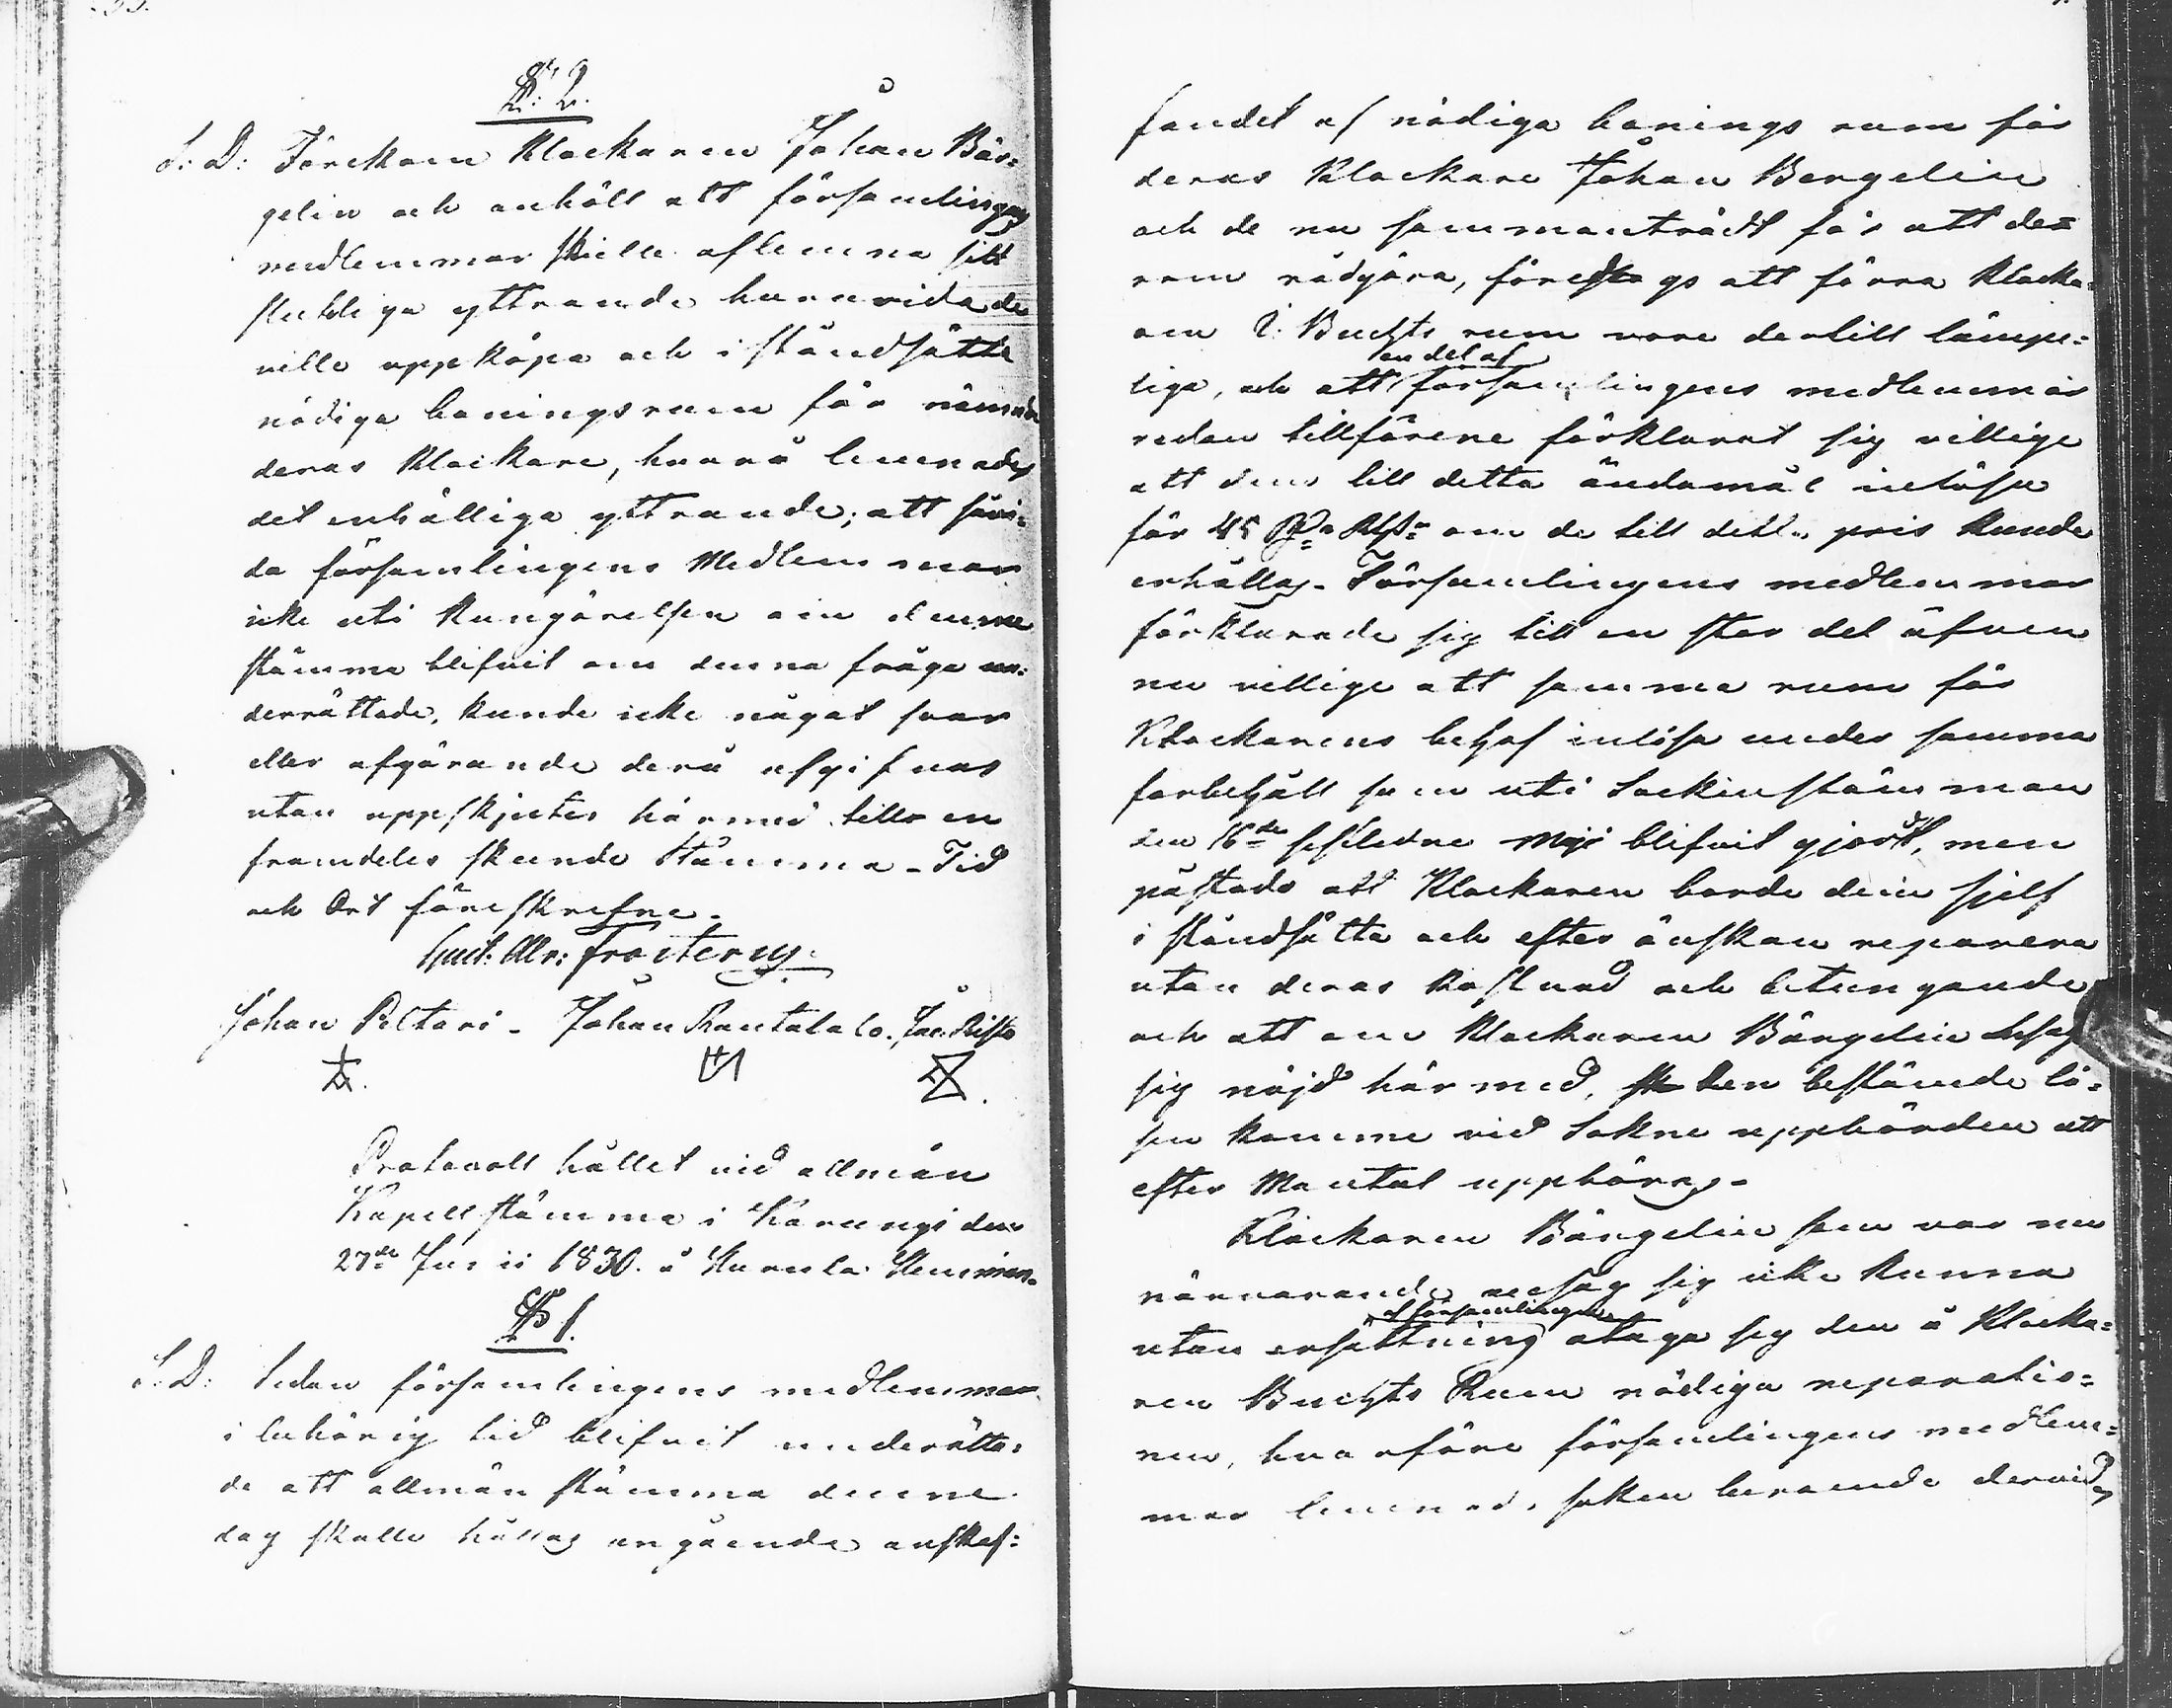 § 2.
S. D. Förekom Klockaren Johan Bär=
gelin och anhöll att församlingens
medlemmar skulle aflemna sitt
slutliga yttrande huruvida de
ville uppköpa och iståndsätta
nödiga boningsrum för nämnde
deras Klockare, hvarå lemnades
det enhälliga yttrande; att såvi=
da församlingens Medlemmar
icke uti kungörelsen om denne
stämma blifvit om denna fråga un=
derrättade, kunde icke något svar
eller afgörande derå afgifvas
utan uppskjutes härmed till en
framdeles skeende Stämma - Tid
och Ort föreskrefne.
Gust. Frosterus.
Johan Peltari - Johan Rautala Jac. Risto
Protocoll hållet vid allmän
Kapellstämma i Karungi den
27de Junii 1830. å Karula Hemman.
§ 1.
S. D. Sedan församlingens medlemmar
i behörig tid blifvit underätta=
de att allmän stämma denne
dag skulle hållas angående anskaf=
fandet af nödiga bonings rum för
deras Klockare Johan Bergelin
och de nu sammanträdt för att der
om rådgöra, föreslogs att förra Klocka=
ren Buchts rum vore dertill lämpe=
en del af
liga, och att församlingens medlemmar
redan tillförene förklarat sig villige
att dem till detta ändamål inlösa
för 45 om de till detta pris kunde
erhållas. Församlingens medlemmar
förklarade sig till en stor del äfven
nu villige att samma rum för
Klockarens behof inlösa under samma
forbehåll som uti Sockenstämman
den 16de sistledne Maji blifvit gjordt, men
påstodo att Klockaren borde dem sjelf
iståndsätta och efter önskan reparera
utan deras kostnad och betungande
och att om Klockaren Bärgelin
sig nöjd här med, den bestämde lö=
sen komme vid Sokne uppbörden att
efter Mantal uppbäras.
Klockaren Bärgelin som var nu
närvarande ansåg sig icke kunna
af församlingen
utan ersättning åtaga sig den å Klocka=
ren Buchts Rum nödiga reparatio=
nen, hvarföre församlingens medlem=
mar lemnade saken beroende dervid